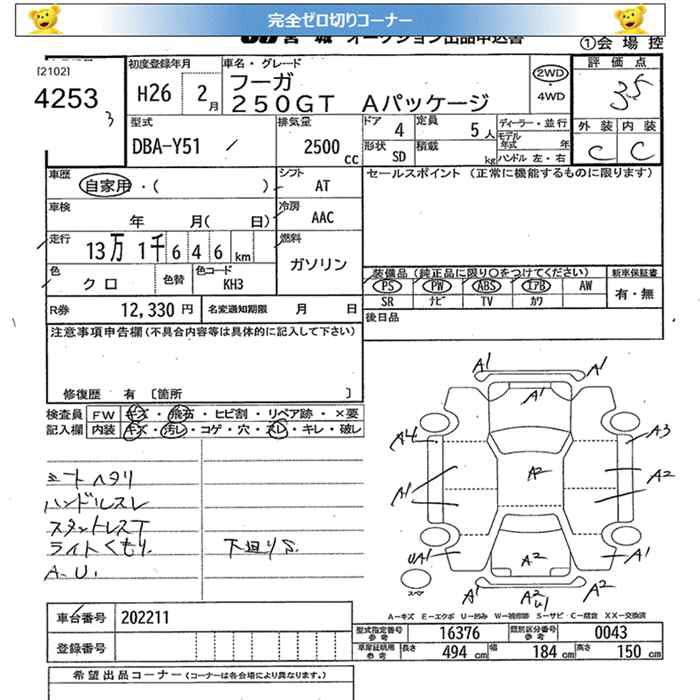 完全ゼロ切りコーナー
宮城 オークション出品申込書
①会場控
[2102]
4253
3
初度登録年月
H26 2月
車名・グレード
フーガ
250GT Aパッケージ
2WD
・4WD
評価点
3.5
外装 内装
C C
型式
DBA-Y51
排気量
2500cc
ドア 4
定員 5人
形状 SD
積載 kg
ディーラー・並行
モデル年式 年
ハンドル 左・右
車歴
自家用・( )
シフト
AT
セールスポイント (正常に機能するものに限ります)
車検
年 月( 日)
冷房
AAC
走行
13万1千646km
燃料
ガソリン
色
クロ
色替
色コード
KH3
装備品(純正品に限り○をつけてください)
PS PW ABS エアB AW
SR ナビ TV カワ
新車保証書
有・無
R券 12,330円
名変通知期限 月 日
後日品
注意事項申告欄(不具合内容等は具体的に記入して下さい)
修復歴 有 [箇所 ]
検査員 FW キズ・飛石・ヒビ割・リペア跡・×要
記入欄 内装 キズ・汚レ・コゲ・穴・スレ・キレ・破レ
シートヘタリ
ハンドルスレ
スタットレスT
ライトくもり
A.U.
下廻りS
A1 A1
A1
A4 A3
A2
A1 A2
UA1 A1
A2
A1 A2 U1 A2
スペア
A－キズ E－エクボ U－凹み W－補修跡 S－サビ・C－腐食 XX－交換済
車台番号 202211
登録番号
型式指定番号参考 16376
類別区分番号参考 0043
車庫証明用参考 長さ 494cm 幅 184cm 高さ 150cm
希望出品コーナー(コーナーは各会場により異なります。)